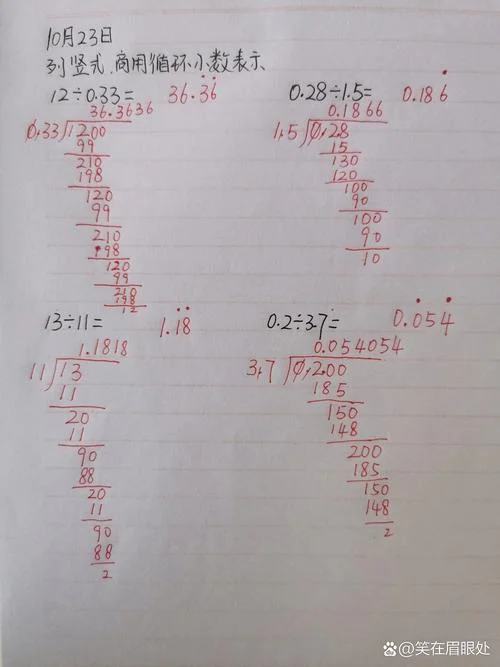 10月23日
列竖式.商用循环小数表示
12÷0.33= 36.3̇6̇
36.3636
0.33 1200
99
210
198
120
99
210
198
120
99
210
198
12
0.28÷1.5= 0.186̇
0.1866
1.5 0.28
15
130
120
100
90
100
90
10
13÷11= 1.1̇8̇
1.1818
11 13
11
20
11
90
88
20
11
90
88
2
0.2÷3.7= 0.0̇54̇
0.054054
3.7 0.200
185
150
148
200
185
150
148
2
Bai百度@笑在眉眼处